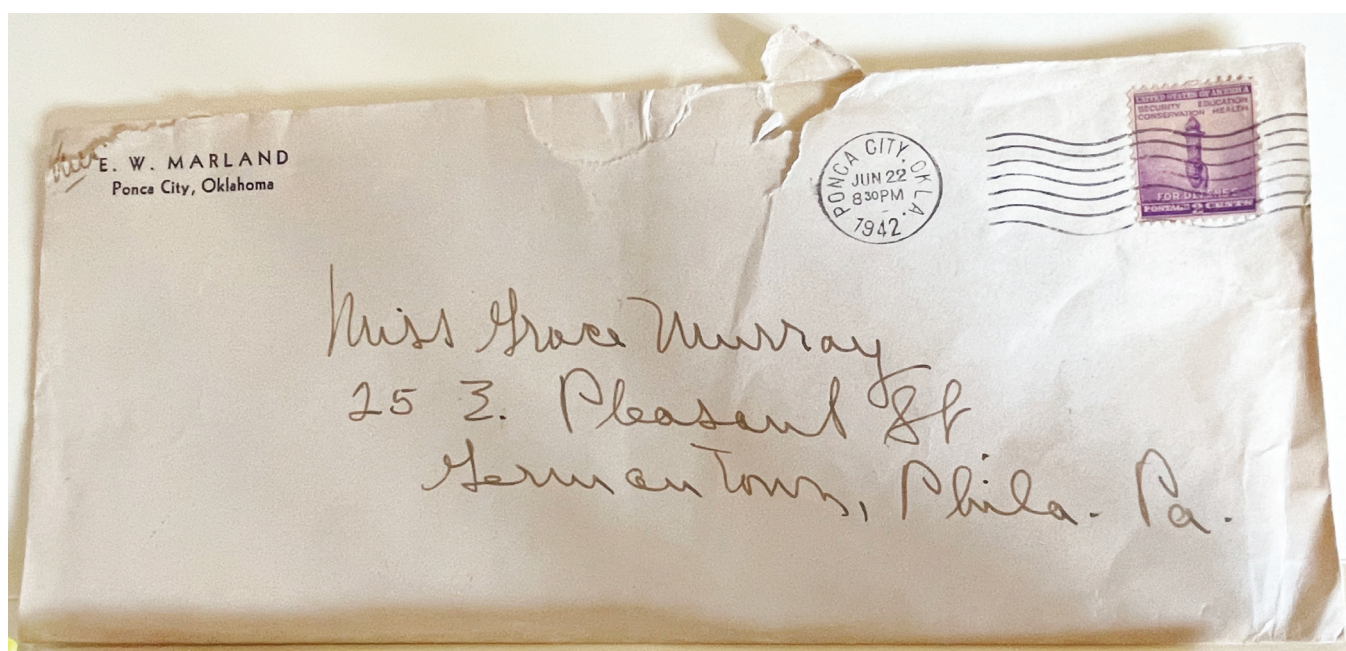 E. W. MARLAND
Ponca City, Oklahoma
PONCA CITY, OKLA.
JUN 22
8 30 PM
1942
UNITED STATES OF AMERICA
SECURITY EDUCATION
CONSERVATION HEALTH
FOR DEFENSE
POSTAGE CENTS
Miss Grace Murray
25 E. Pleasant St
Germantown, Phila. Pa.